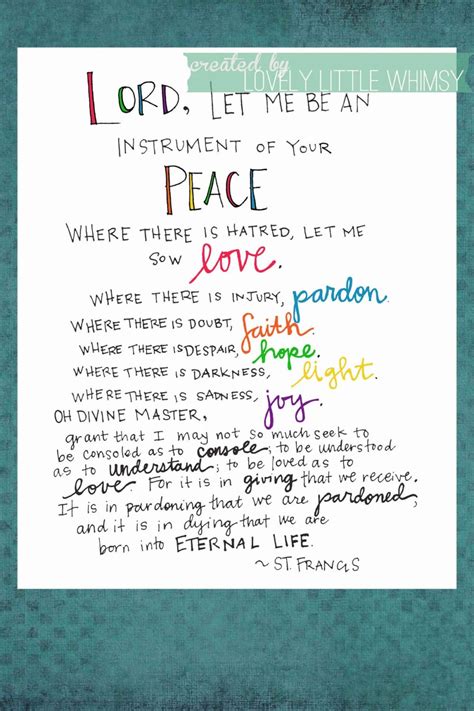 created by
LOVELY LITTLE WHIMSY
LORD, LET ME BE AN
INSTRUMENT OF YOUR
PEACE
WHERE THERE IS HATRED, LET ME
SOW love.
WHERE THERE IS INJURY, pardon.
WHERE THERE IS DOUBT, faith.
WHERE THERE IS DESPAIR, hope.
WHERE THERE IS DARKNESS, light.
WHERE THERE IS SADNESS, joy.
OH DIVINE MASTER,
grant that I may not so much seek to
be consoled as to console; to be understood
as to understand; to be loved as to
love. For it is in giving that we receive.
It is in pardoning that we are pardoned,
and it is in dying that we are
born into ETERNAL LIFE.
~ ST. FRANCIS